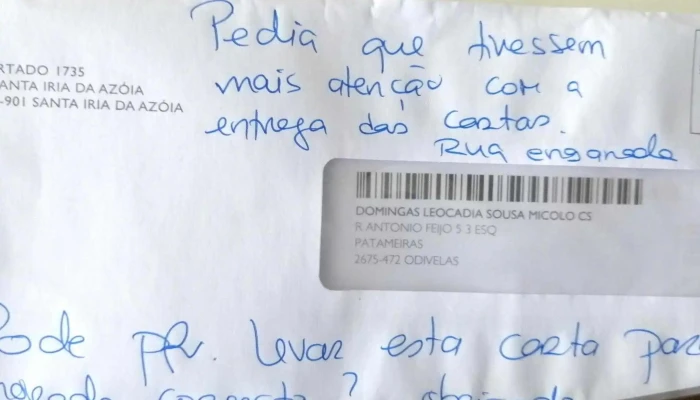 RTADO 1735
ANTA IRIA DA AZÓIA
-901 SANTA IRIA DA AZÓIA
Pedia que tivessem
mais atenção com a
entrega das cartas.
Rua enganada
DOMINGAS LEOCADIA SOUSA MICOLO CS
R ANTONIO FEIJO 5 3 ESQ
PATAMEIRAS
2675-472 ODIVELAS
Pode pfv. levar esta carta par
correcta?